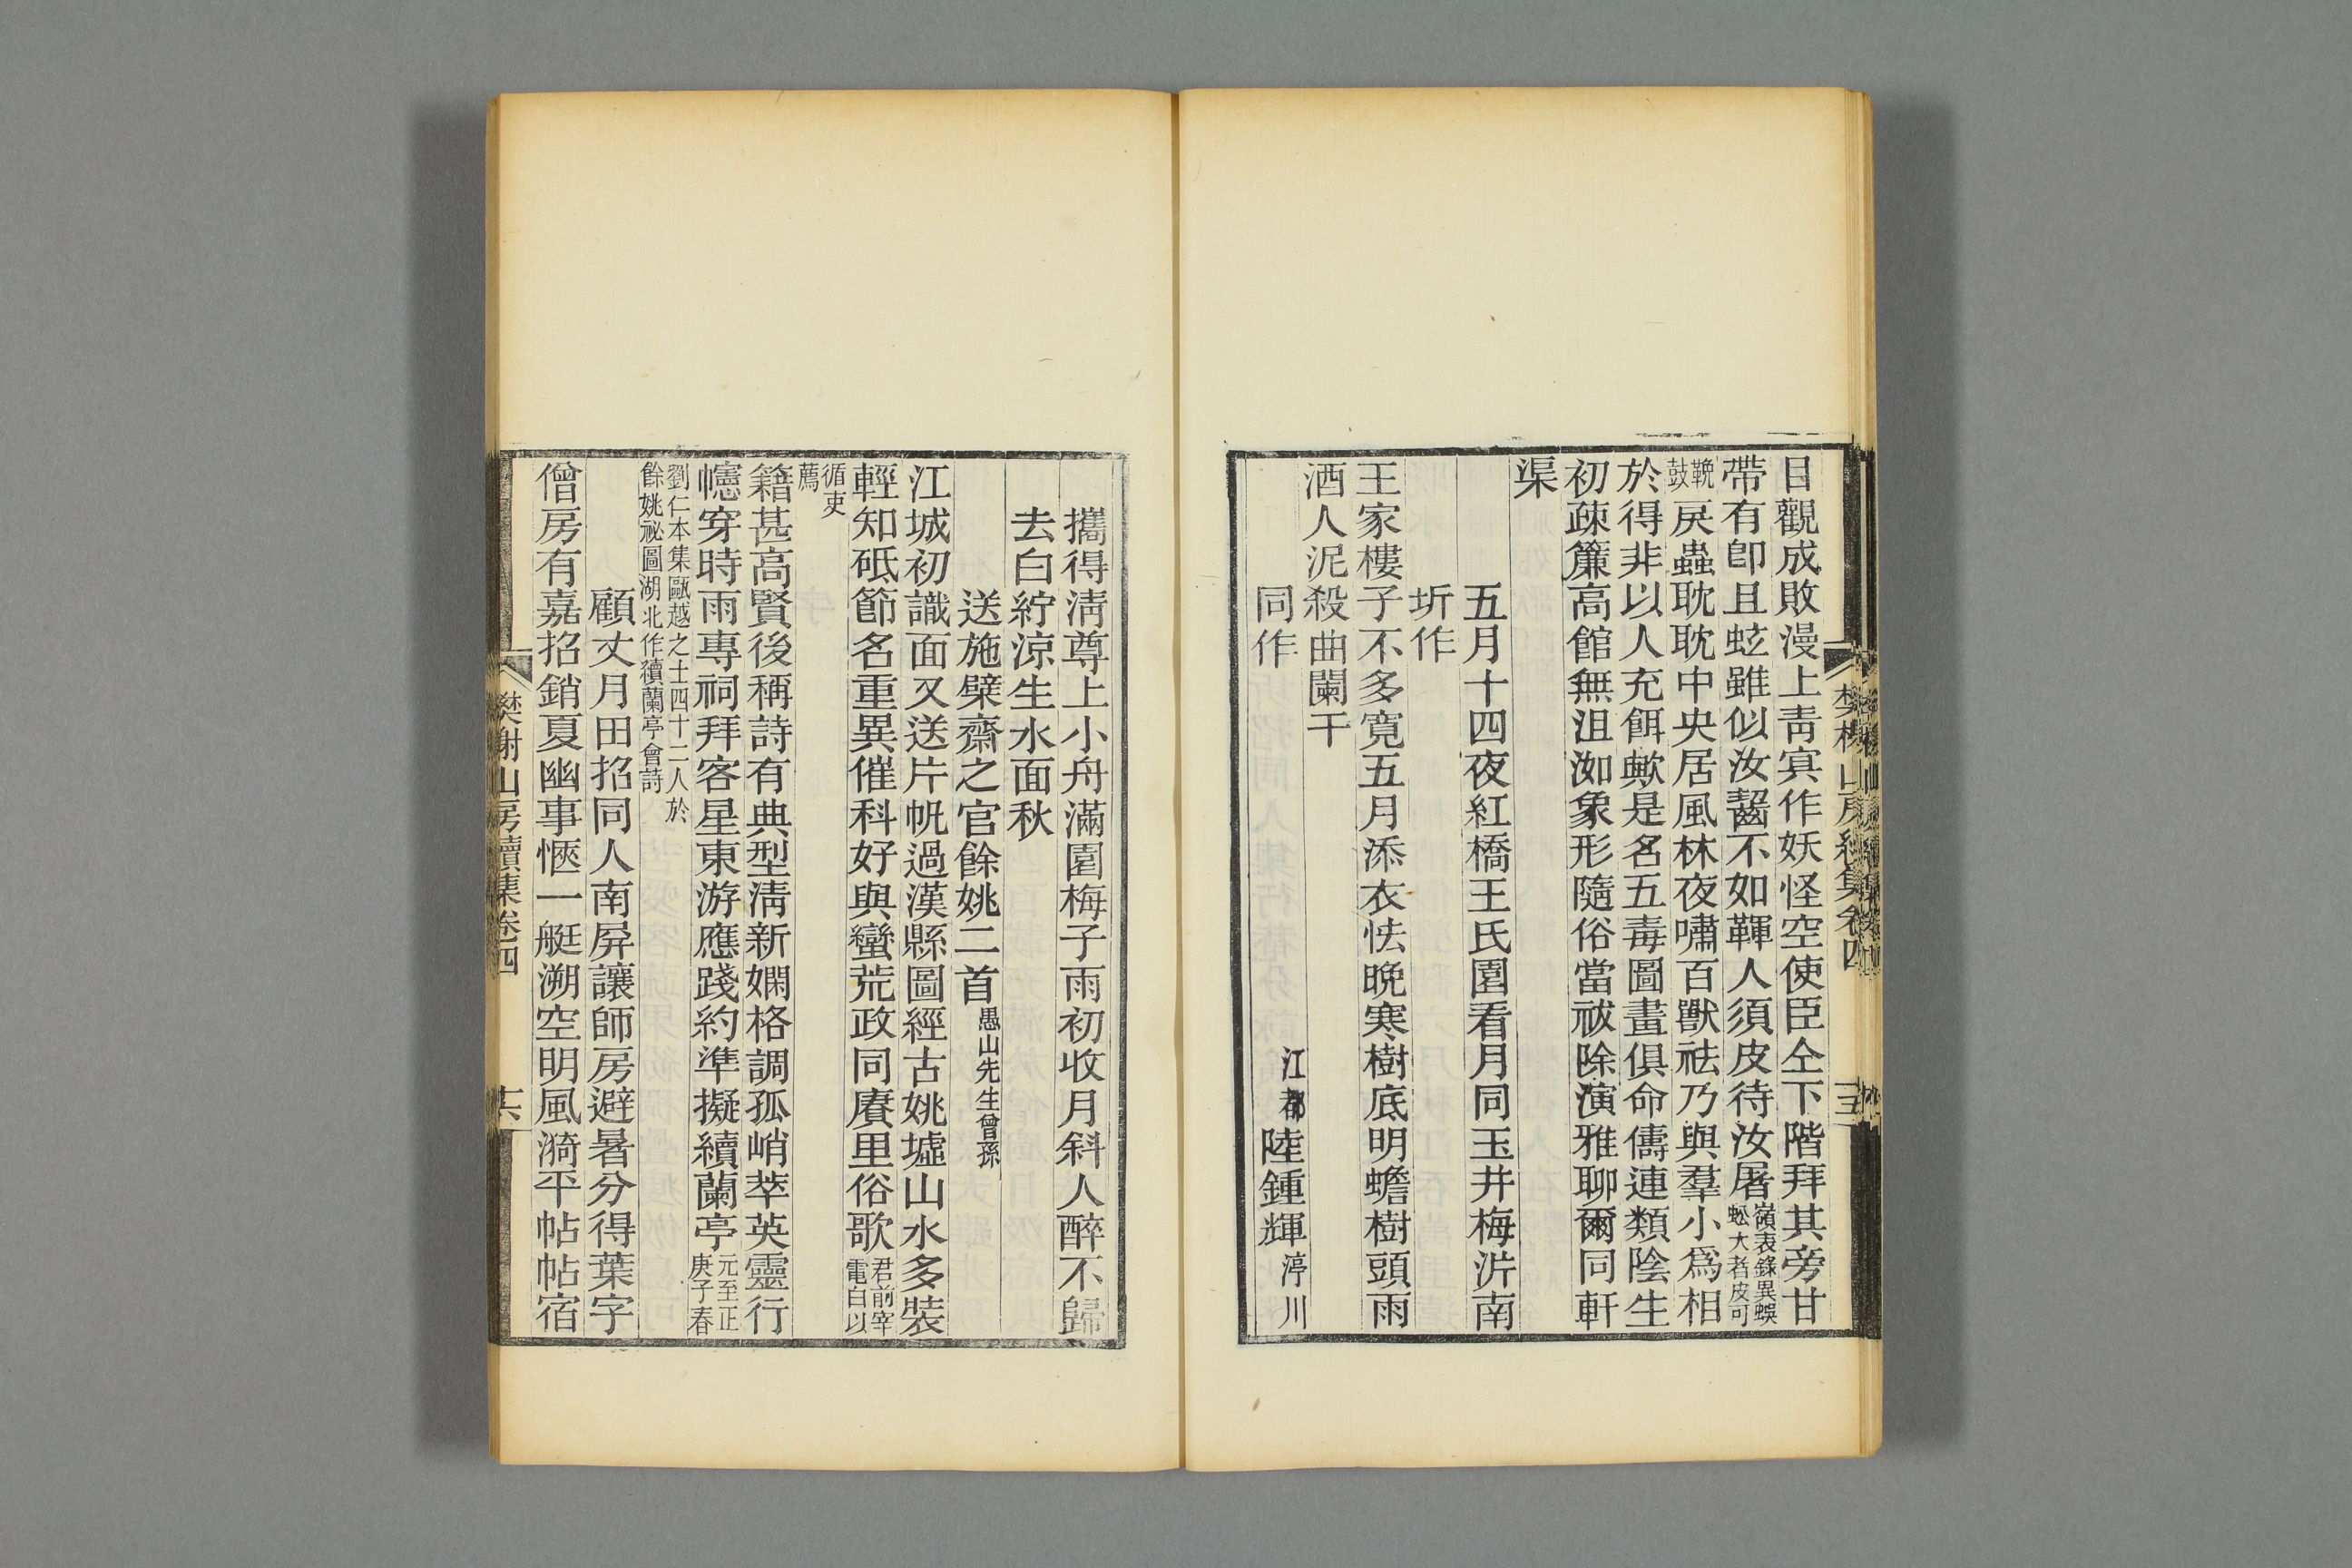 目觀成敗漫上靑㝠作妖怪空使臣仝下階拜其旁甘
帶有卽且蚿雖似汝齧不如鞾人須皮待汝屠嶺表錄異蜈蚣大者皮可
鞔鼓戻蟲耽耽中央居風林夜嘯百獸祛乃與羣小爲相
於得非以人充餌歟是名五毒圖畫俱命儔連類陰生
初疎簾高館無沮洳象形隨俗當祓除演雅聊爾同軒
渠
五月十四夜紅橋王氏園看月同玉井梅沜南
圻作
王家樓子不多寬五月添衣怯晩寒樹底明蟾樹頭雨
酒人泥殺曲闌干
同作 江都陸鍾輝渟川
攜得淸尊上小舟滿園梅子雨初收月斜人醉不歸
去白紵涼生水面秋
送施檗齋之官餘姚二首愚山先生曾孫
江城初識面又送片帆過漢縣圖經古姚墟山水多裝
輕知砥節名重異催科好與蠻荒政同賡里俗歌君前宰電白以
循吏薦
籍甚高賢後稱詩有典型淸新嫻格調孤峭萃英靈行
幰穿時雨專祠拜客星東游應踐約準擬續蘭亭元至正庚子春
劉仁本集甌越之士四十二人於餘姚祕圖湖北作續蘭亭會詩
顧丈月田招同人南屛讓師房避暑分得葉字
僧房有嘉招銷夏幽事愜一艇溯空明風漪平帖帖宿
樊榭山房續集卷四